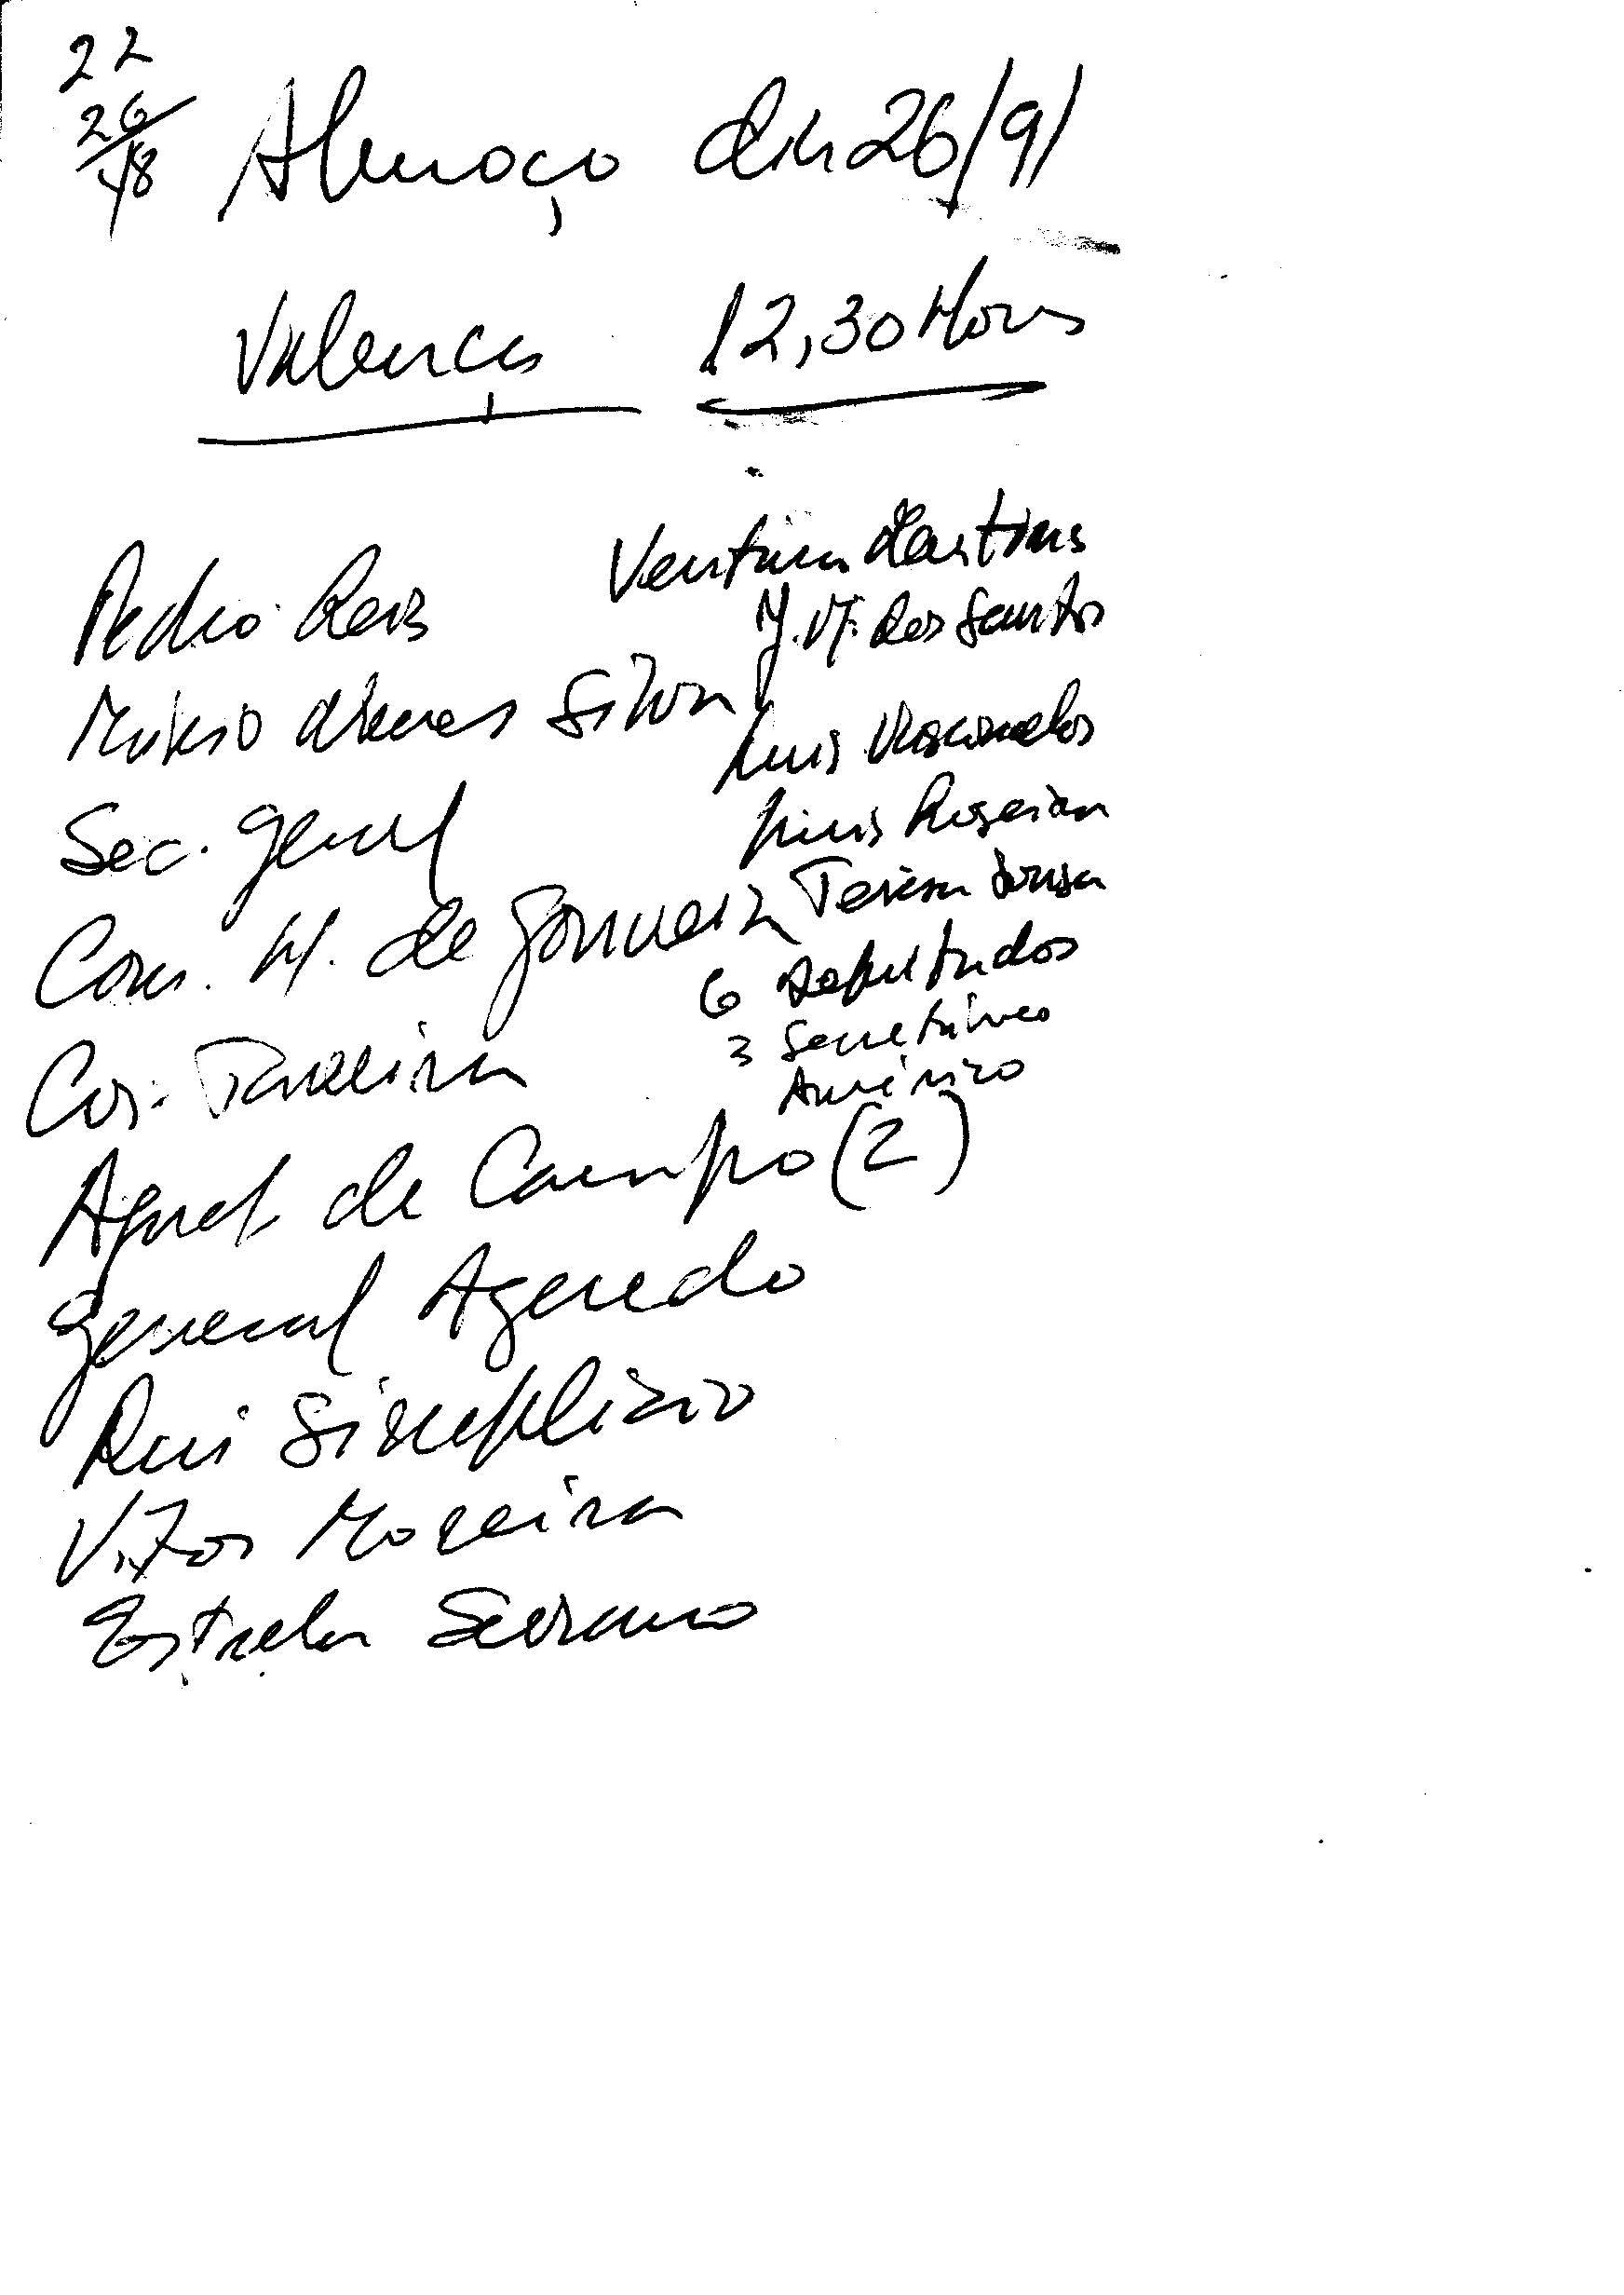 22
26
48
Almoço dia 26/9/
Valença 12,30 Horas
Pedro Reis
Mário Nunes Silva
Sec. geral
Com. M. de
Cor. Taveira
Ajud. de Campo (2)
General Azeredo
Rui Simplicio
Vitor Moreira
Estrela Serrano
Ventura Martins
J. M. dos Santos
Luis Vasconcelos
Luis
Teresa Sousa
6 Deputados
3 Secretários
Américo